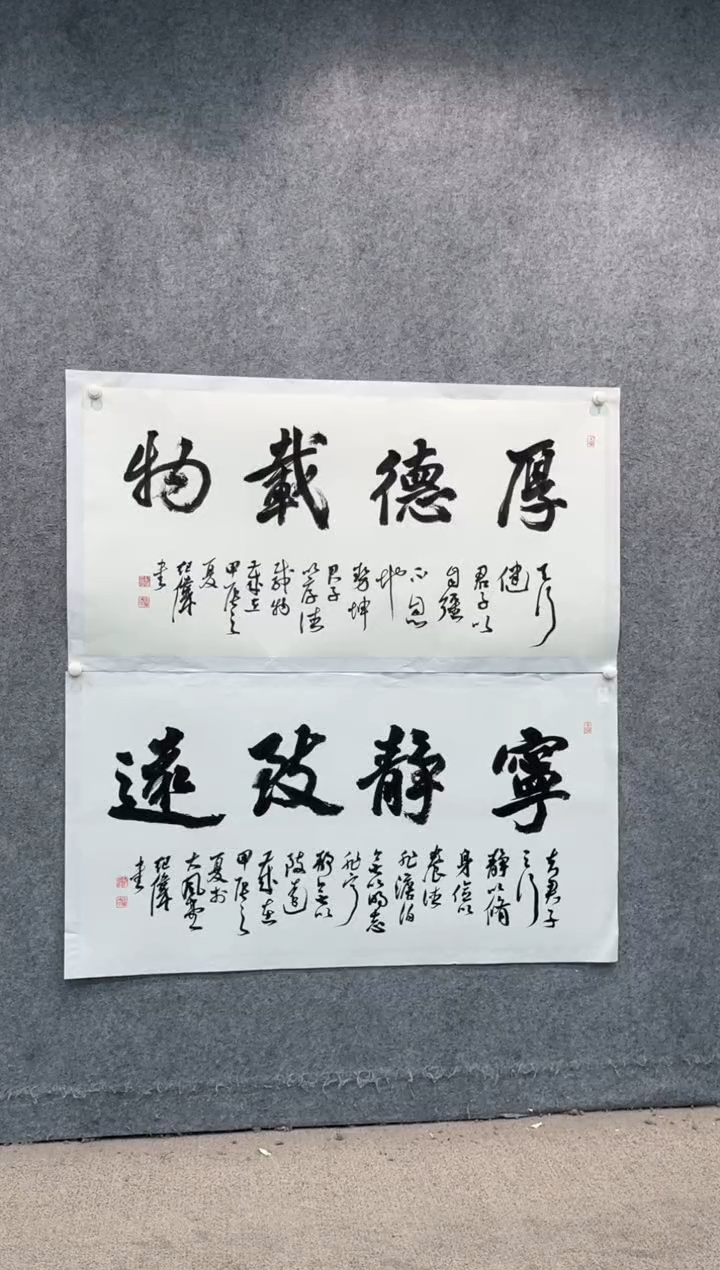 厚德載物
天行
健
君子以
自強
不息
地
勢坤
君子
以厚德
載物
歲在
甲辰之
夏
紀偉
書
寧靜致遠
夫君子
之行
靜以修
身儉以
養德
非澹泊
無以明志
非寧
靜無以
致遠
歲在
甲辰之
夏於
大風堂
紀偉
書